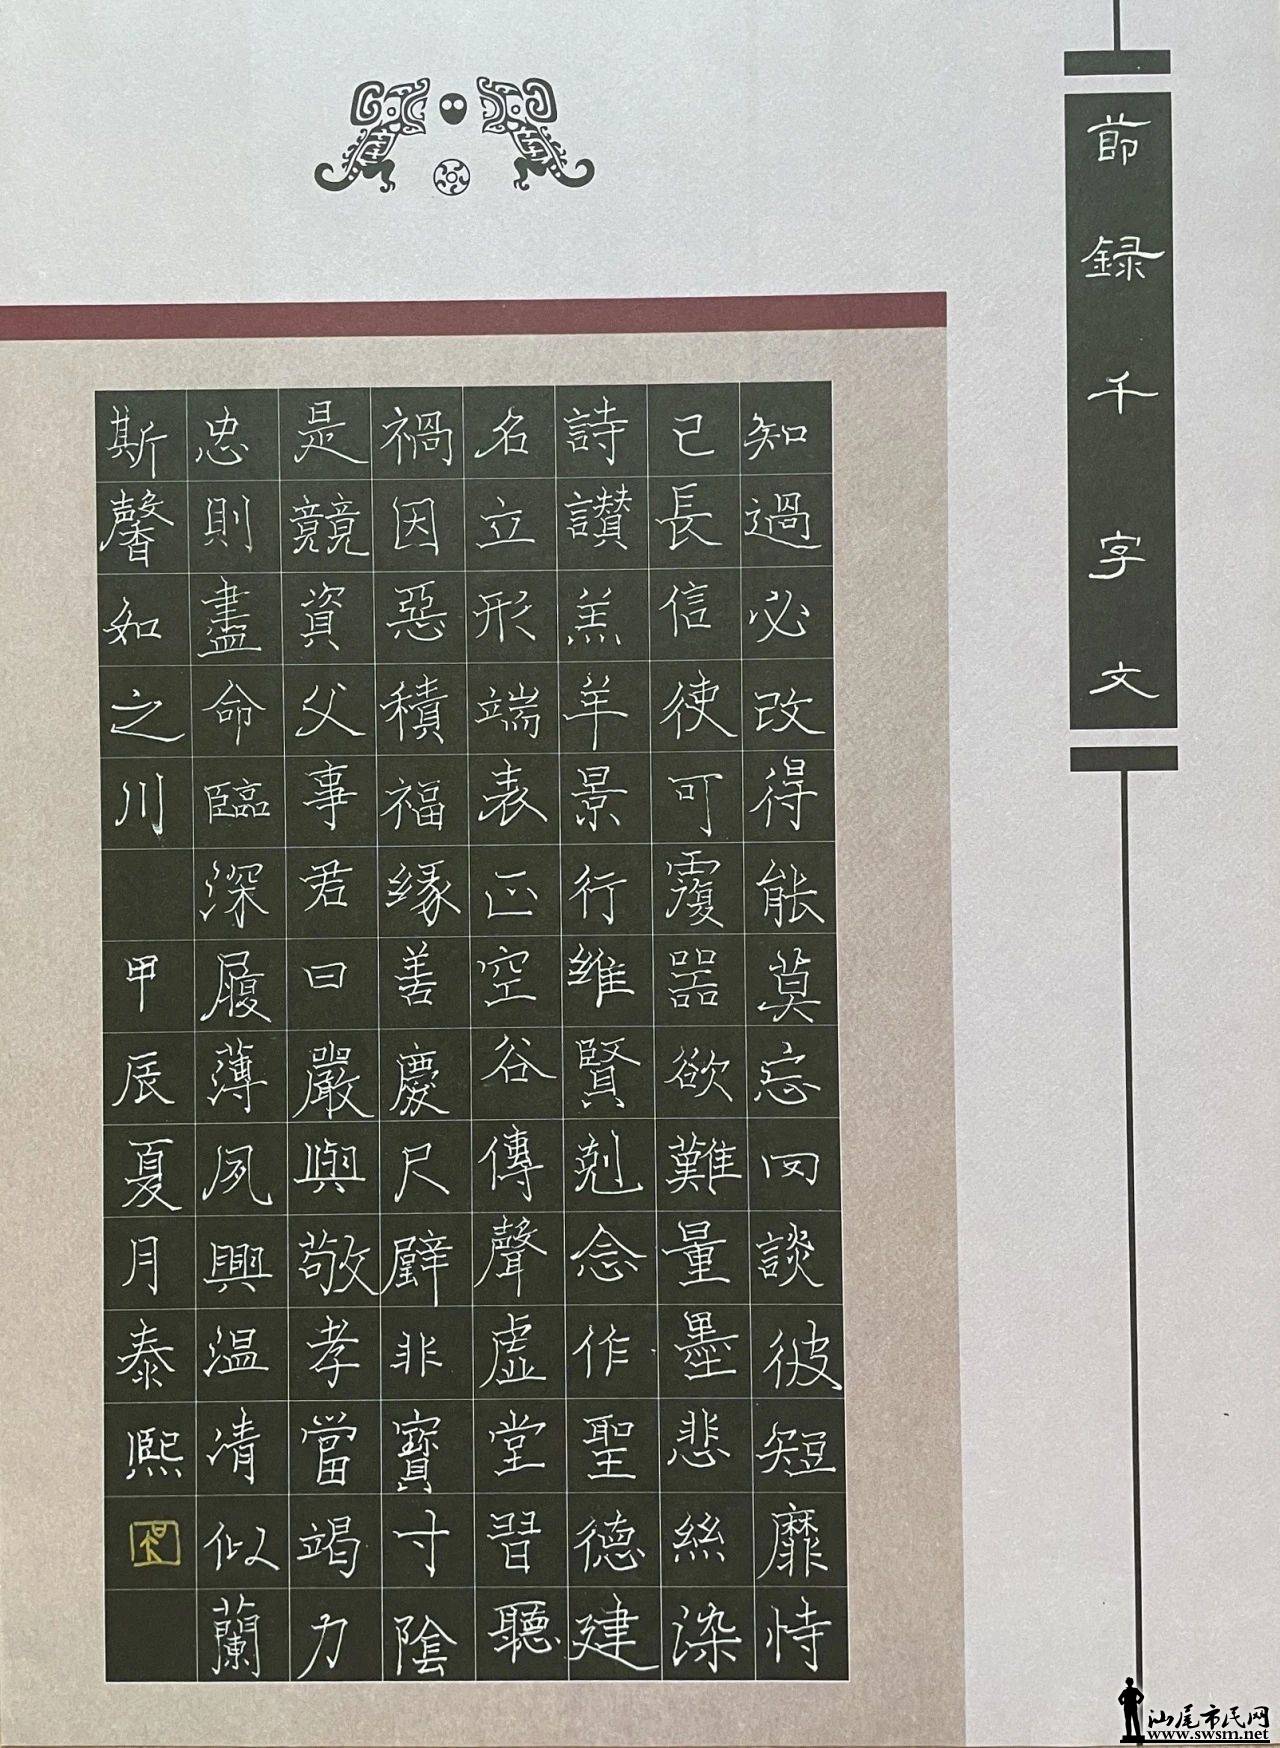 莭録千字文
知過必改得能莫忘罔談彼短靡恃
己長信使可覆器欲難量墨悲絲染
詩讃羔羊景行維賢剋念作聖德建
名立形端表正空谷傳聲虛堂習聽
禍因惡積福緣善慶尺璧非寶寸陰
是競資父事君曰嚴與敬孝當竭力
忠則盡命臨深履薄夙興温凊似蘭
斯馨如之川 甲辰夏月泰熙
汕尾市民网
www.swsm.net